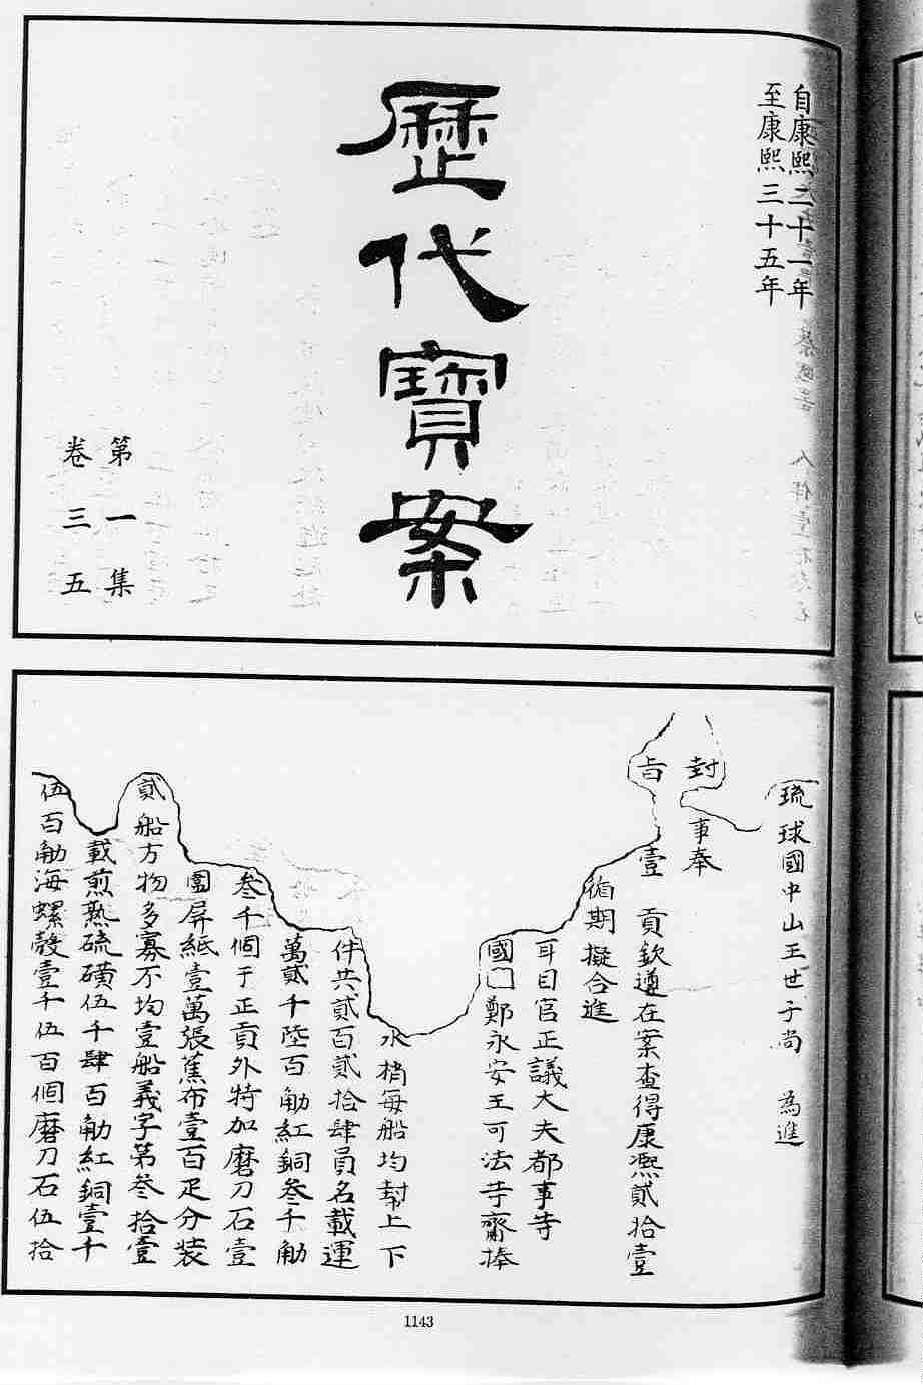 自康熙二十一年
至康熙三十五年
歷代寶案
第一集
卷三五
琉球國中山王世子尚 為進
封
事奉
旨
壹 貢欽遵在案查得康熈貳拾壹
循期擬合進
耳目官正議大夫都事寺
國□鄭永安王可法寺齎捧
水梢每船均幇上下
件共貳百貳拾肆員名載運
萬貳千陸百觔紅銅叁千觔
叁千個于正貢外特加磨刀石壹
圍屏紙壹萬張蕉布壹百疋分装
貳船方物多寡不均壹船義字第叁拾壹
載煎熟硫磺伍千肆百觔紅銅壹千
伍百觔海螺殼壹千伍百個磨刀石伍拾
1143